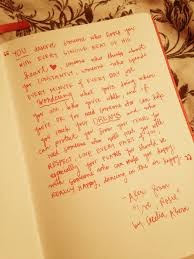 "YOU deserve someone who loves you
with every single beat of his
heart, ♥ someone who thinks about
you CONSTANTLY, someone who spends
every minute of every day just
wondering what you're doing,
where you are, who you're with and if
you're OK. You need someone who can help
you reach your DREAMS and who
can protect you from your fears. You
need someone who will treat you with
RESPECT, LOVE every part of you,
especially your FLAWS. You should be
with someone who can make you happy,
REALLY happy, dancing on air happy."
- Alex from
"Love, Rosie"
by Cecelia Ahern